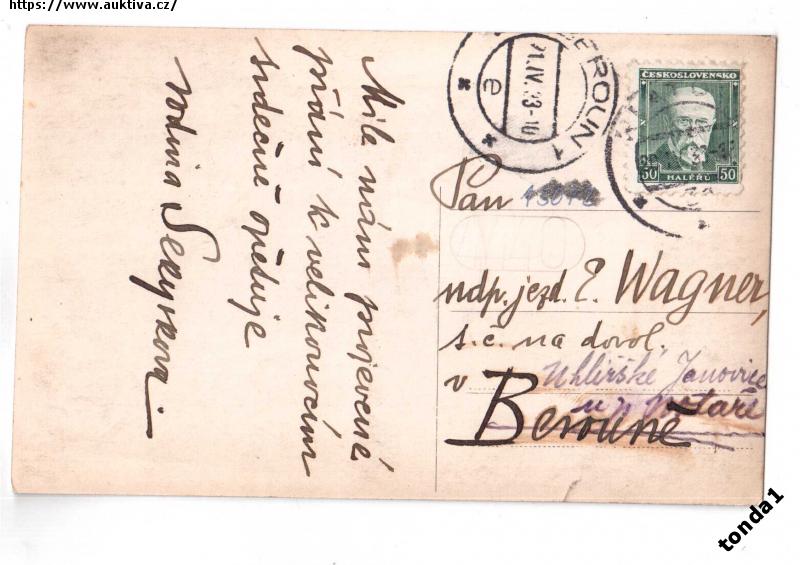 https://www.auktiva.cz/
Mile námi projevené
přání k velikonocím
srdečně opětuje
rodina
BEROUN 1
21.IV.33-10
e
ČESKOSLOVENSKO
50 HALÉŘŮ 50
Pan
ndp. jezd. E. Wagner,
s.č. na dovol.
v Uhlířské Janovice
Berouně
tonda1